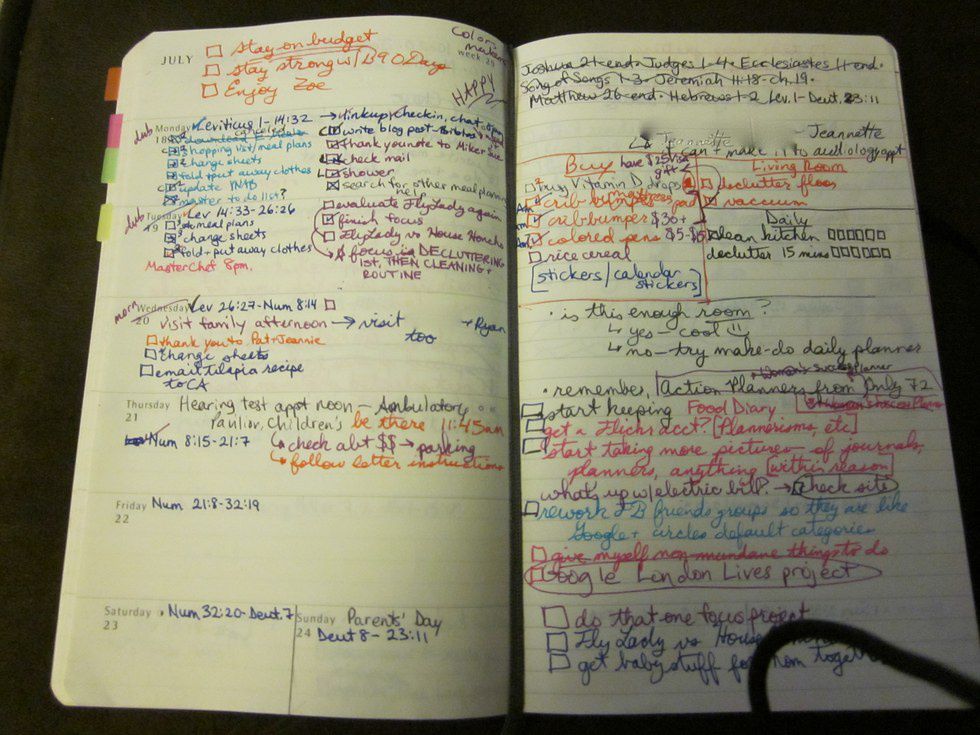 JULY
☐ Stay on budget
☐ stay strong w/B90Days
☐ Enjoy Zoe
Colors
make
week 29
HAPPY
Monday
18
Leviticus 1-14:32
canceled
shopping list/meal plans
change sheets
fold + put away clothes
update YNAB
master to do list?
→ linkup, checkin, chat 8pm
write blog post
thank you note to Mike + Sue
check mail
shower
search for other meal planning
help
Tuesday
19
Lev 14:33-26:26
meal plans
change sheets
fold + put away clothes
MasterChef 8pm.
evaluate FlyLady again
finish focus
FlyLady vs House Honcho
focus is DECLUTTERING
1st, THEN CLEANING +
ROUTINE
Wednesday
20
Lev 26:27-Num 8:14
visit family afternoon → visit + Ryan
too
thank you to Pat + Jeannie
change sheets
email tilapia recipe
to CA
Thursday
21
Hearing test appt noon - Ambulatory
Pavilion, Children's be there 11:45am
Num 8:15-21:7
↳ check abt $$ → parking
↳ follow letter instructions
Friday
22
Num 21:8-32:19
Saturday
23
Num 32:20-Deut. 7
Sunday
24
Parents' Day
Deut 8-23:11
Joshua 21-end. Judges 1-4. Ecclesiastes 11-end.
Song of Songs 1-3. Jeremiah 11:18-ch.19.
Matthew 26-end. Hebrews 1-2 Lev. 1-Deut. 23:11
Jeannette
- Jeannette
can't make it to audiology appt
Buy
have $25 Visa
gift
buy Vitamin D drops
crib mattress pad
crib bumper $30+
colored pens $5-$15
rice cereal
[stickers/calendar
stickers]
Living Room
declutter floor
vaccuum
Daily
clean kitchen ☐☐☐☐☐☐
declutter 15 mins ☐☐☐☐☐☐
· is this enough room?
↳ yes - cool
↳ no - try make-do daily planner
· remember, Action Planners from Only 72
start keeping Food Diary
get a flickr acct? [Plannerisms, etc]
start taking more pictures of journals,
planners, anything [within reason]
what's up w/electric bill? → check site
rework FB friends groups so they are like
Google+ circles default categories
give myself non-mundane things to do
Google London Lives project
☐ do that one focus project
☐ Fly Lady vs House
☐ get baby stuff for mom together